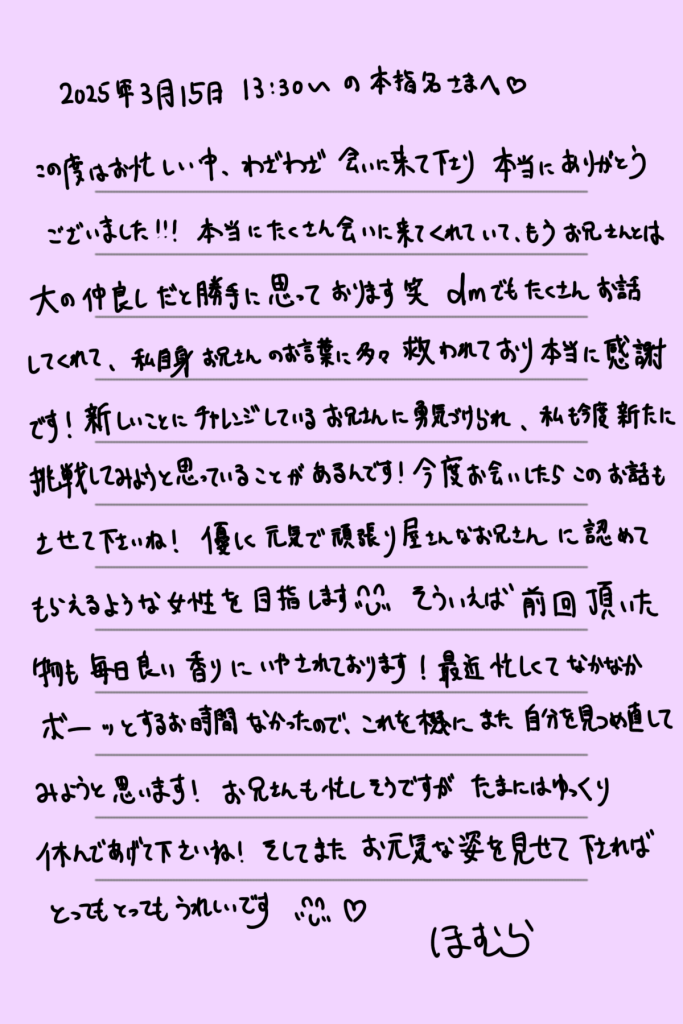 2025年3月15日 13:30〜の本指名さまへ♡
この度はお忙しい中、わざわざ会いに来て下さり本当にありがとう
ございました!!! 本当にたくさん会いに来てくれていて、もうお兄さんとは
大の仲良しだと勝手に思っております笑 dmでもたくさんお話
してくれて、私自身お兄さんのお言葉に多々救われており本当に感謝
です!新しいことにチャレンジしているお兄さんに勇気づけられ、私も今度新たに
挑戦してみようと思っていることがあるんです!今度お会いしたらこのお話も
させて下さいね! 優しく元気で頑張り屋さんなお兄さんに認めて
もらえるような女性を目指します そういえば前回頂いた
物も毎日良い香りにいやされております!最近忙しくてなかなか
ボーッとするお時間なかったので、これを機にまた自分を見つめ直して
みようと思います! お兄さんも忙しそうですがたまにはゆっくり
休んであげて下さいね! そしてまたお元気な姿を見せて下されば
とってもとってもうれしいです ♡
ほむら